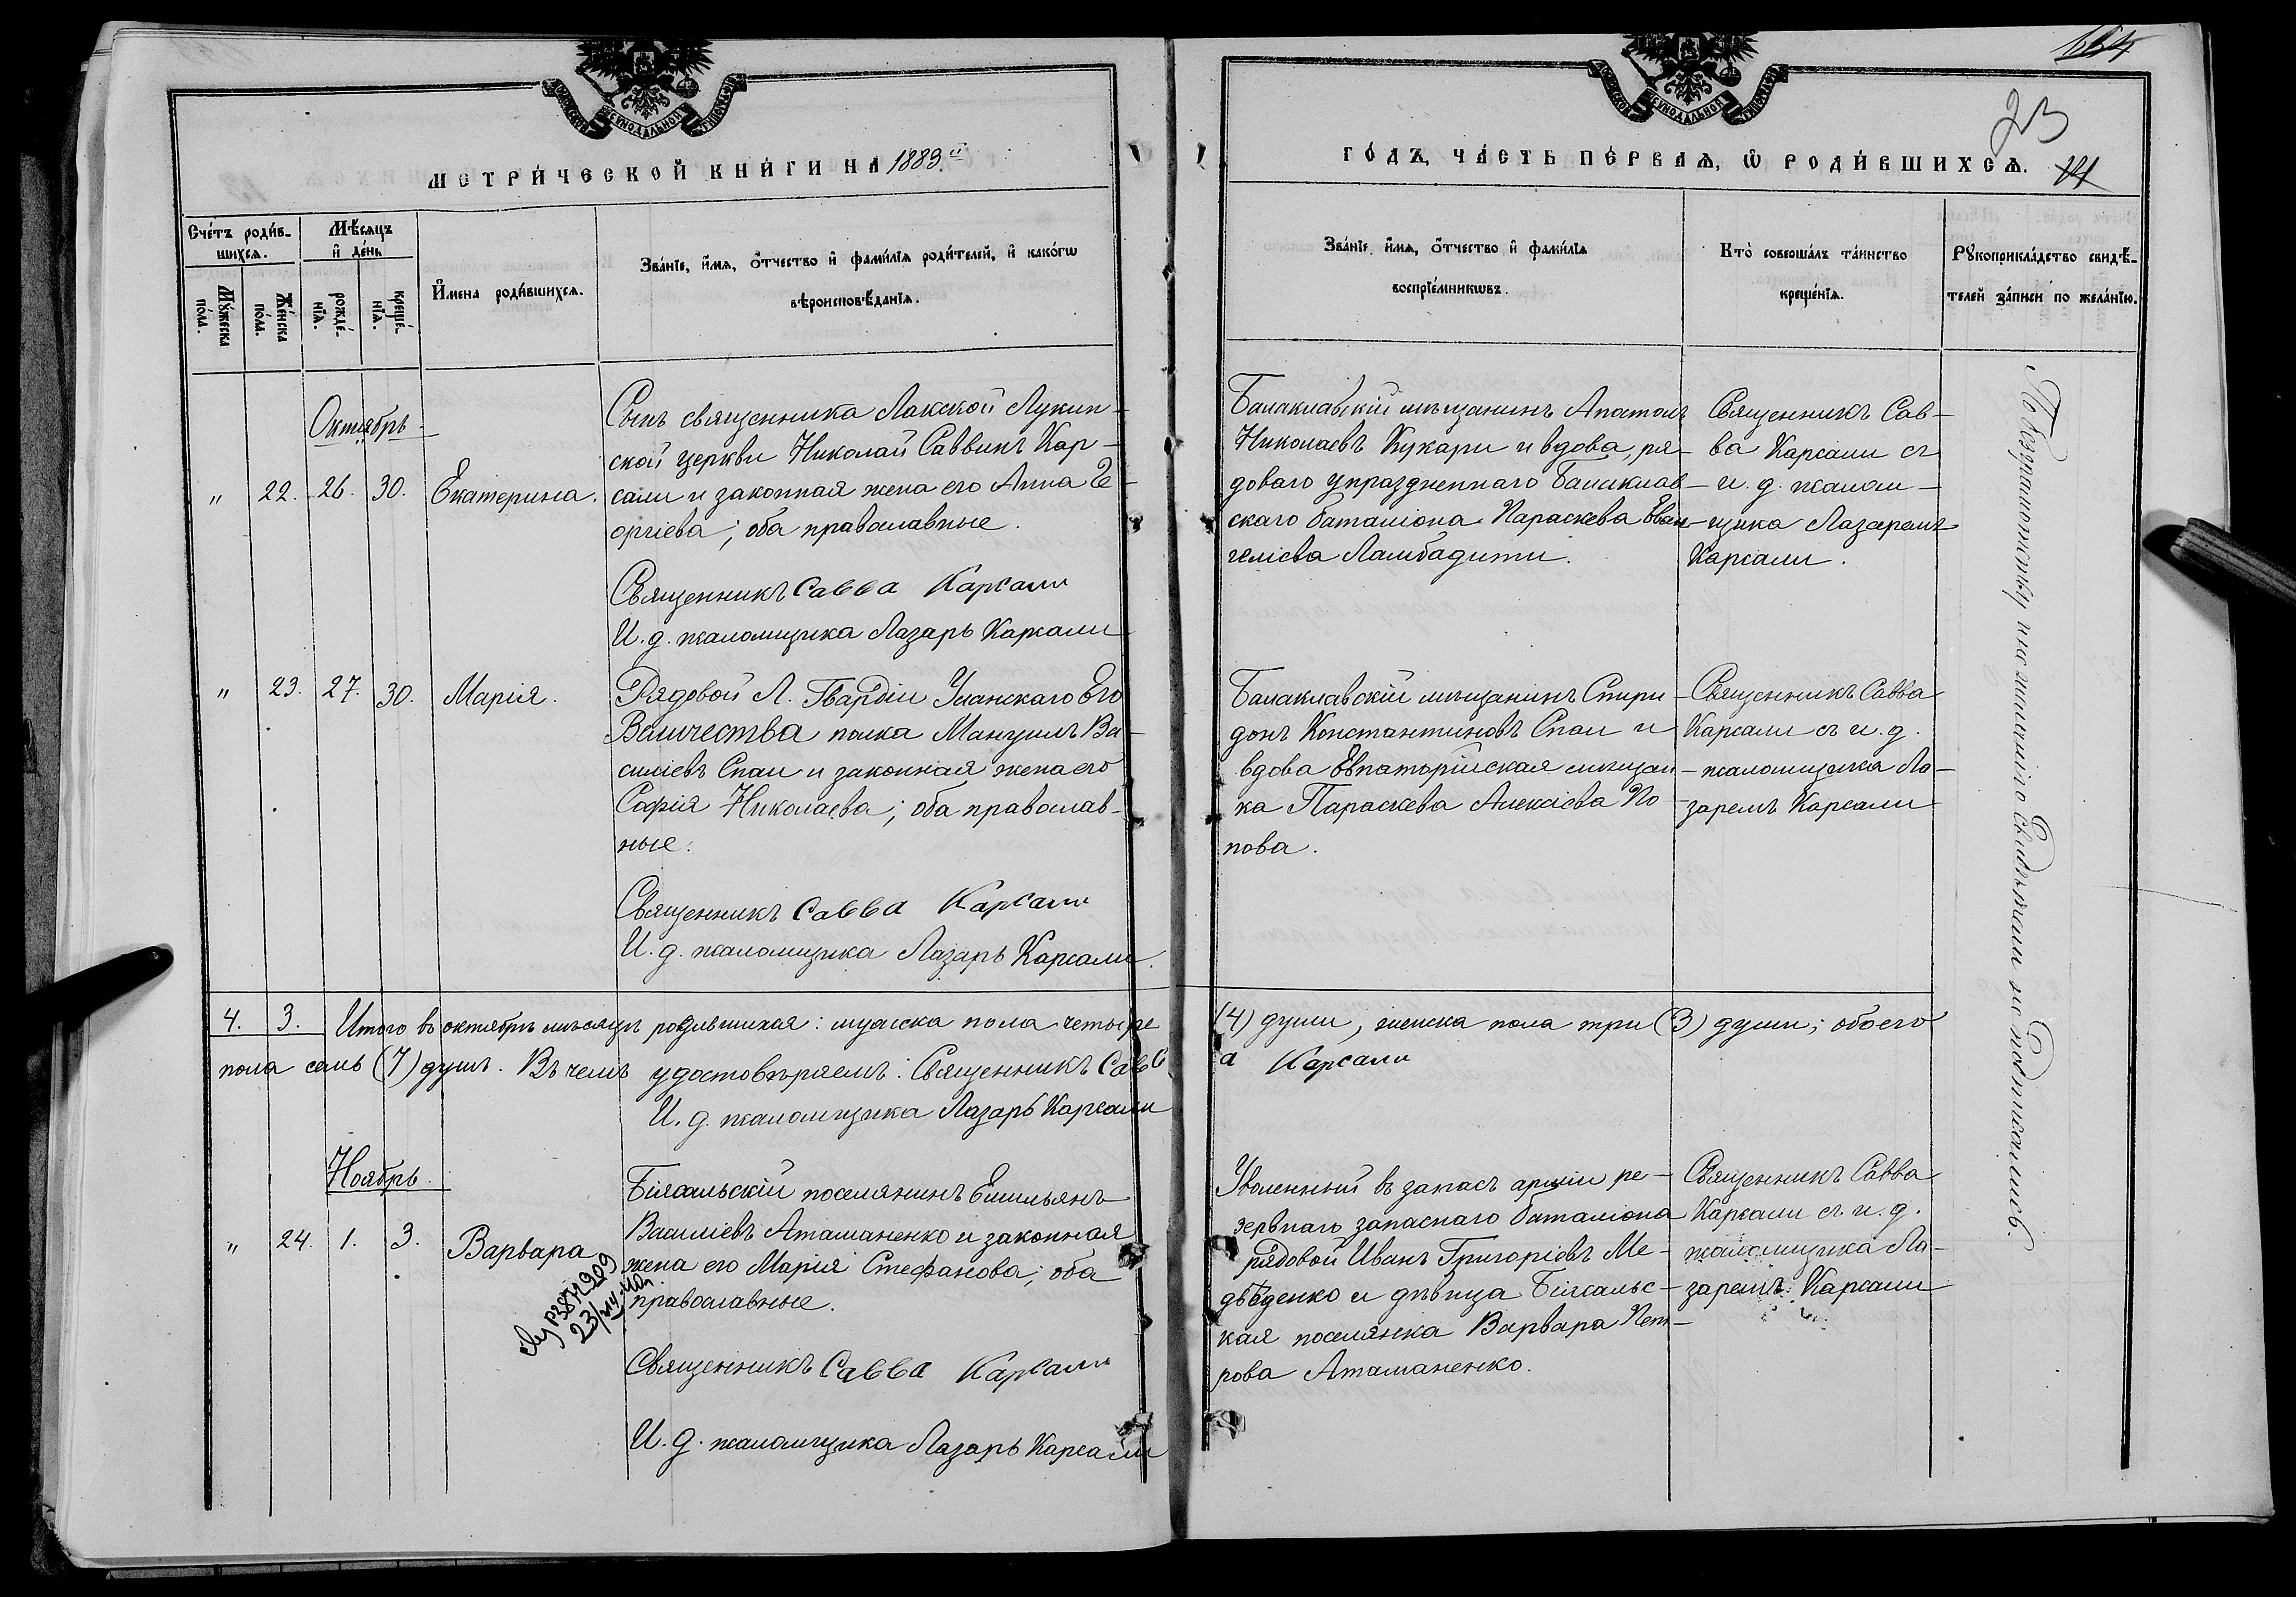 164
23
14
МОСКОВСКОЙ СѴНОДАЛЬНОЙ ТИПОГРАФІИ
МОСКОВСКОЙ СѴНОДАЛЬНОЙ ТИПОГРАФІИ
МЕТРИ́ЧЕСКОЙ КНИ́ГИ НА 1883.й
ГО́ДЪ, ЧА́СТЬ ПЕ́РВАѦ, Ѡ РОДИ́ВШИХСѦ.
Сче́тъ роди́в-
шихсѧ.
Мѣ́сѧцъ
и҆ де́нь
Му́жеска
по́ла.
Же́нска
по́ла.
рожде́-
нїѧ.
креще́-
нїѧ.
И҆мена роди́вшихсѧ.
Зва́нїе, и҆́мѧ, ѻ҆́тчество и҆ фами́лїѧ роди́телей, и҆ како́гѡ
вѣроисповѣ́данїѧ.
Зва́нїе, и҆́мѧ, ѻ҆́тчество и҆ фами́лїѧ
воспрїе́мникѡвъ.
Кто̀ соверша́лъ та́инство
креще́нїѧ.
Рꙋкоприкла́дство свидѣ́-
телей за́писи по жела́нїю.
Октябрь
" 22. 26. 30. Екатерина.
Сынъ священника Лакской Лукин-
ской церкви Николай Саввинъ Кар-
сали и законная жена его Анна Ге-
оргіева; оба православные.
Священникъ Савва Карсали
И. д. псаломщика Лазарь Карсали
Балаклавскій мѣщанинъ Анатолъ
Николаевъ Кукари и вдова, ря-
доваго упраздненнаго Балаклав-
скаго баталіона Параскева Еван-
геліева Ламбадити.
Священникъ Сав-
ва Карсали съ
и. д. псалом-
щика Лазаремъ
Карсали.
" 23. 27. 30. Марія.
Рядовой Л. Гвардіи Уланскаго Его
Величества полка Мануилъ Ва-
силіевъ Спаи и законная жена его
Софія Николаева; оба православ-
ные.
Священникъ Савва Карсали
И. д. псаломщика Лазарь Карсали.
Балаклавскій мѣщанинъ Спири-
донъ Константиновъ Спаи и
вдова Евпаторійская мѣщан-
ка Параскева Алексіева По-
пова.
Священникъ Савва
Карсали съ и. д.
псаломщика Ла-
заремъ Карсали
4. 3. Итого въ октябрѣ мѣсяцѣ родившихся: мужска пола четыре (4) души, женска пола три (3) души; обоего
пола семь (7) душъ. Въ чемъ удостовѣряемъ: Священникъ Савва Карсали
И. д. псаломщика Лазарь Карсали
Ноябрь.
" 24. 1. 3. Варвара
23/
Біясальскій поселянинъ Емильянъ
Василіевъ Атаманенко и законная
жена его Марія Стефанова; оба
православные.
Священникъ Савва Карсали
И. д. псаломщика Лазарь Карсали
Уволенный въ запасъ арміи ре-
зервнаго запаснаго баталіона
рядовой Иванъ Григоріевъ Ме-
двѣденко и дѣвица Біясальс-
кая поселянка Варвара Пет-
рова Атаманенко.
Священникъ Савва
Карсали съ и. д.
псаломщика Ла-
заремъ Карсали
По безграмотству и не желанію свидѣтели не подписались.